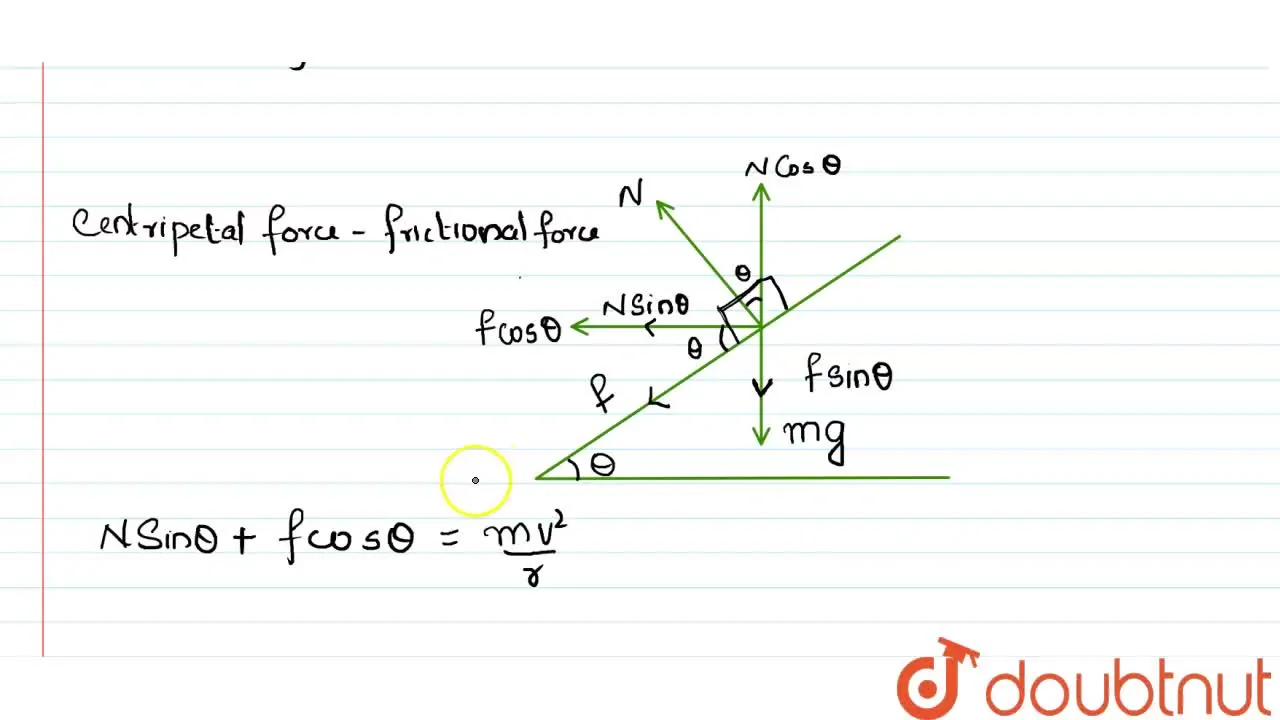 N Cosθ
N
Centripetal force - frictional force
θ
N Sinθ
f cosθ
θ
f sinθ
f
mg
θ
N Sinθ + f cosθ = mv²/r
doubtnut